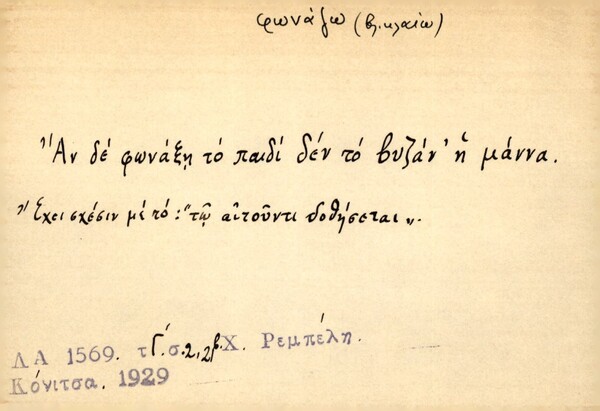 φωνάζω (βλ. κλαίω)
Ἂν δέ φωνάξῃ τό παιδί δέν τό βυζάν' ἡ μάννα.
Ἔχει σχέσιν μέ τό: "τῷ αἰτοῦντι δοθήσεται".
ΛΑ 1569. τ Γ΄. σ. 2, 2β. Χ. Ρεμπέλη.
Κόνιτσα. 1929